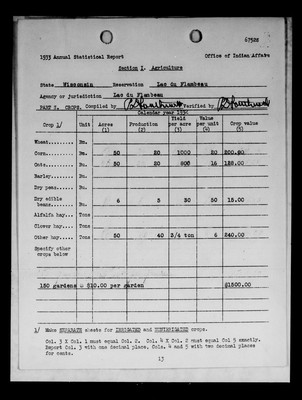 67528
1933 Annual Statistical Report Office of Indian Affairs
Section I. Agriculture
State Wisconsin Reservation Lac du Flambeau
Agency or jurisdiction Lac du Flambeau
PART 2. CROPS. Compiled by Verified by
Calendar year 1932
Crop 1/ Unit Acres (1) Production (2) Yield per acre (3) Value per unit (4) Crop value (5)
Wheat........ Bu.
Corn......... Bu. 50 20 1000 20 200.00
Oats......... Bu. 50 20 800 16 128.00
Barley....... Bu.
Dry peas..... Bu.
Dry edible beans..... Bu. 6 5 30 50 15.00
Alfalfa hay.. Tons
Clover hay... Tons
Other hay.... Tons 50 40 3/4 ton 6 240.00
Specify other crops below
150 gardens @ $10.00 per garden $1500.00
1/ Make SEPARATE sheets for IRRIGATED and NONIRRIGATED crops.
Col. 3 X Col. 1 must equal Col. 2. Col. 4 X Col. 2 must equal Col 5 exactly.
Report Col. 3 with one decimal place, Cols. 4 and 5 with two decimal places
for cents.
13